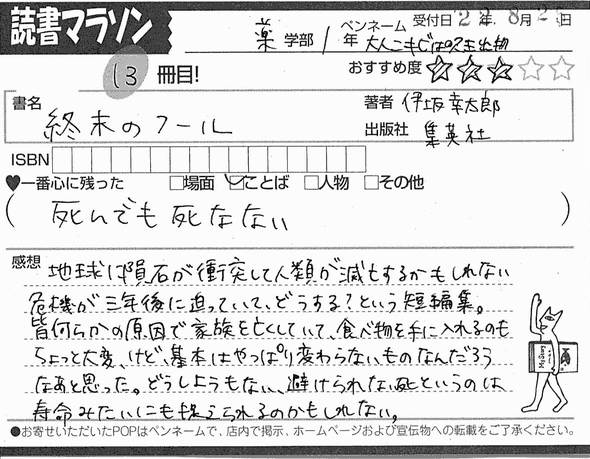 読書マラソン
受付日22年8月25日
薬学部1年
ペンネーム
13冊目!
おすすめ度
書名
終末のフール
著者 伊坂幸太郎
出版社 集英社
ISBN
♥一番心に残った □場面 □ことば □人物 □その他
(死んでも死なない)
感想
地球に隕石が衝突して人類が滅亡するかもしれない
危機が三年後に迫っていて、どうする?という短編集。
皆何らかの原因で家族を亡くしていて、食べ物を手に入れるのも
ちょっと大変、けど、基本はやっぱり変わらないものなんだろう
なあと思った。どうしようもない、避けられない死というのは、
寿命みたいにも捉えられるのかもしれない。
●お寄せいただいたPOPはペンネームで、店内で掲示、ホームページおよび宣伝物への転載をご了承ください。